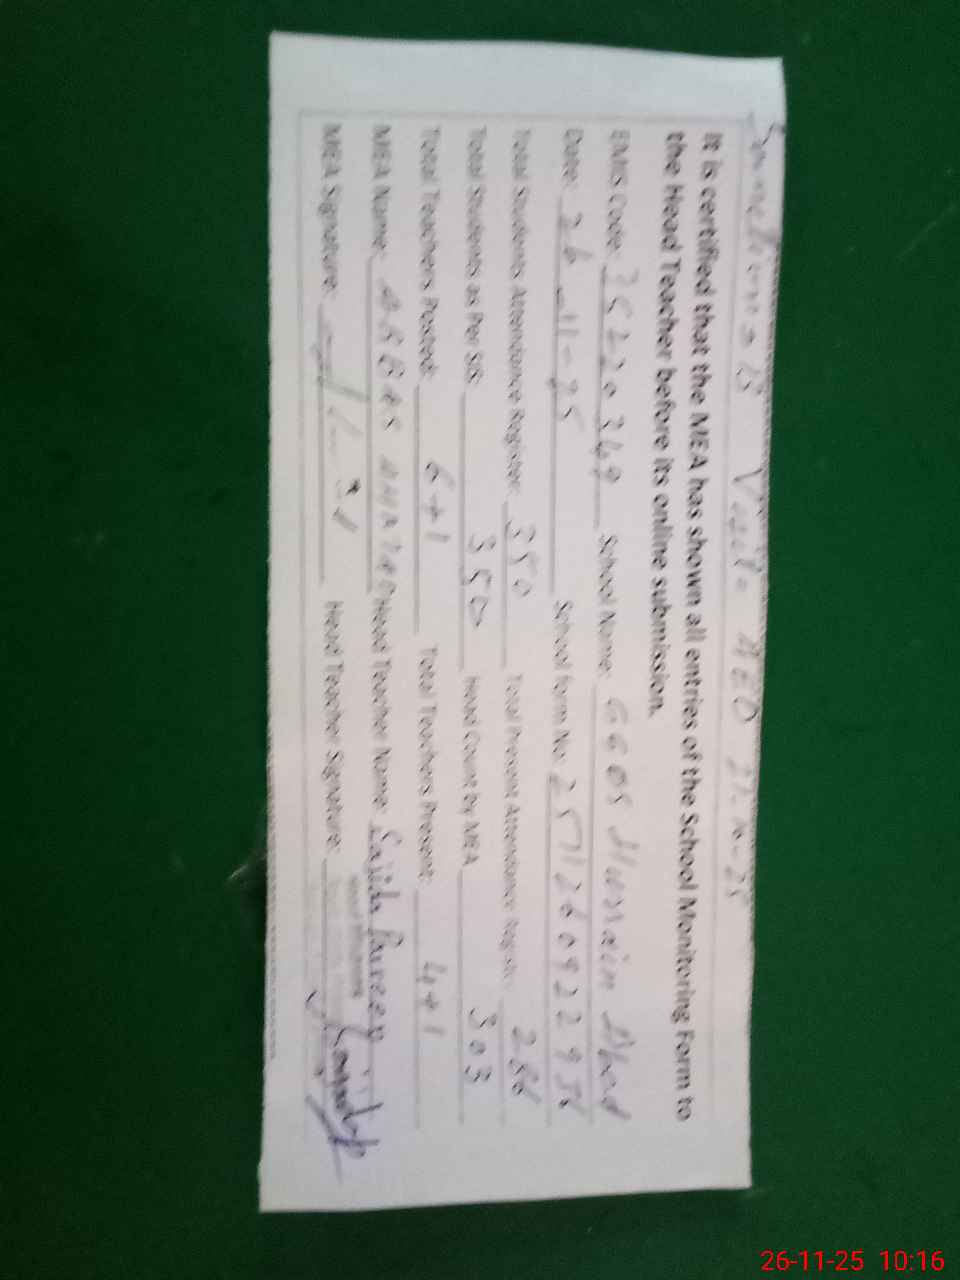 Visit AEO 27-10-25
It is certified that the MEA has shown all entries of the School Monitoring Form to
the Head Teacher before its online submission.
EMIS Code: 35220349 School Name:
Date: 26-11-25 School Form No: 25112609229
Total Students Attendance Register: 350 Total Present Attendance Register: 286
Total Students as Per SIS: 350 Head Count by MEA 303
Total Teachers Posted: 6+1 Total Teachers Present: 4+1
MEA Name: ABBAS AHMAD Head Teacher Name: Sajida Parveen
MEA Signature: Head Teacher Signature:
26-11-25 10:16